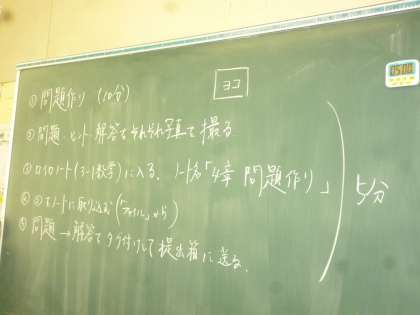 ヨコ
05:00
① 問題作り (10分)
② 問題、ヒント、解答をそれぞれ写真で撮る
③ ロイロノート(3-1数学)に入る、ノート名「4章 問題作り」
④ ②をノートに取り込む(「ファイル」から)
⑤ 問題→解答でタグ付けして提出箱に送る.
5分